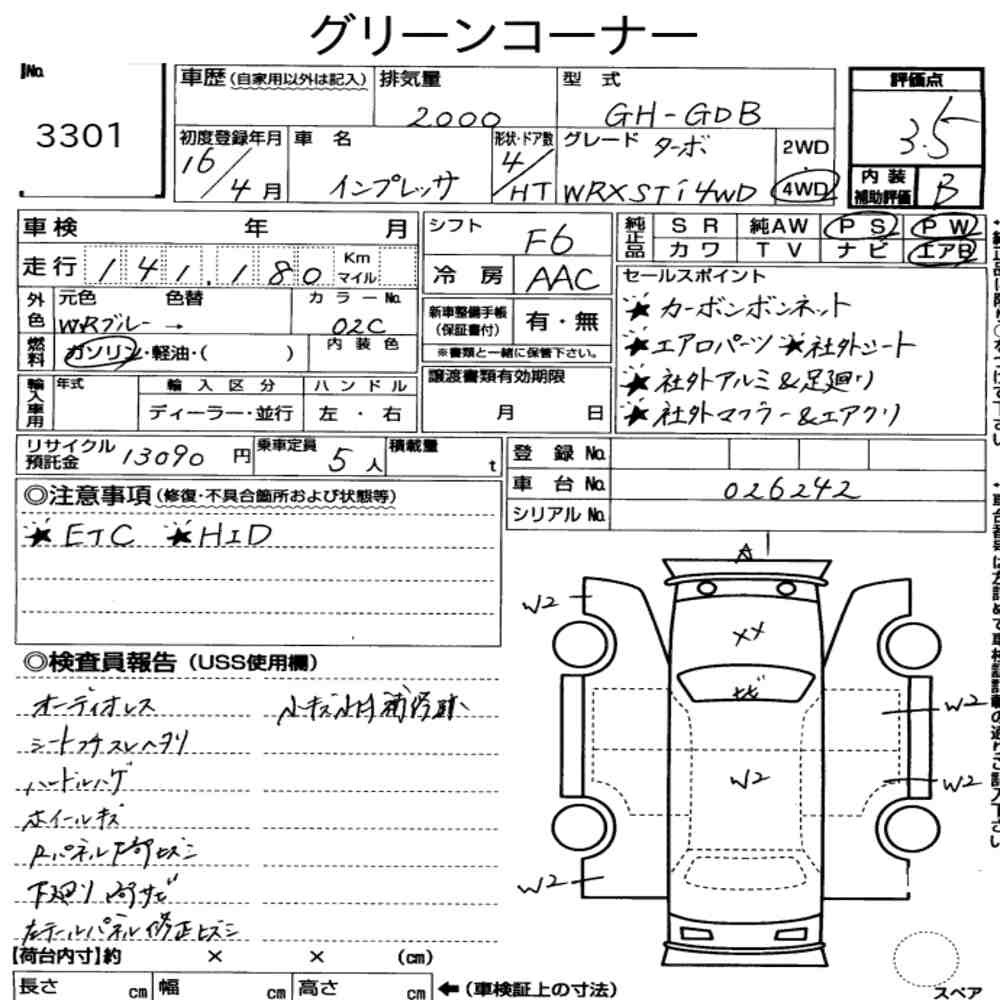 グリーンコーナー
No.
3301
車歴 (自家用以外は記入)
排気量
2000
型 式
GH-GDB
評価点
3.5
初度登録年月
16/4月
車 名
インプレッサ
形状・ドア数
4/HT
グレード ターボ
WRXSTi4WD
2WD
・
4WD
内 装
補助評価
B
車検 年 月
走行 141,180 Km
マイル
シフト
F6
冷 房
AAC
純正品
S R
純AW
P S
P W
カ ワ
T V
ナ ビ
エアB
外色
元色 色替
WRブルー →
カラーNo.
02C
燃料
ガソリン・軽油・( )
内 装 色
新車整備手帳
(保証書付)
有・無
※書類と一緒に保管下さい。
セールスポイント
★カーボンボンネット
★エアロパーツ ★社外シート
★社外アルミ&足廻り
★社外マフラー&エアクリ
輸入車用
年式
輸 入 区 分
ディーラー・並行
ハ ン ド ル
左 ・ 右
譲渡書類有効期限
月 日
リサイクル
預託金
13090 円
乗車定員
5人
積載量
t
登 録 No.
車 台 No.
026242
シリアル No.
◎注意事項 (修復・不具合箇所および状態等)
★ETC ★HID
◎検査員報告 (USS使用欄)
オーディオレス
シートフチスレヘタリ
ハンドルハゲ
ホイールキズ
Rパネル下部ヒズミ
下廻り サビ
左テールパネル修正ヒズミ
小キズ小凹補修跡
A
W2
XX
サビ
W2
W2
W2
W2
【荷台内寸】約 × × (cm)
長さ cm
幅 cm
高さ cm
←(車検証上の寸法)
スペア